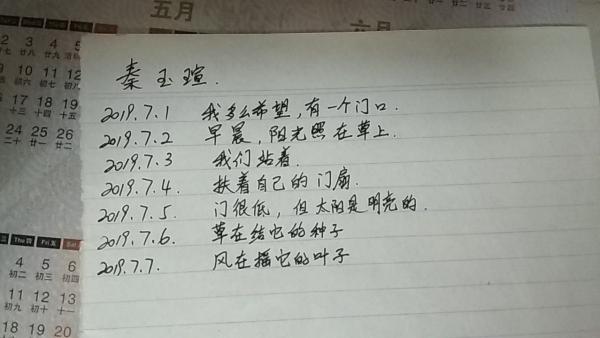 五月
六月
2 3 4 5
廿八 廿九
9 10 11 12
初六 初七 初八
16 17 18 19
十三 十四 十五
24 25 26
二十 廿一 廿二
秦玉瑄.
2019.7.1 我多么希望,有一个门口.
2019.7.2 早晨,阳光照在草上.
2019.7.3 我们站着.
2019.7.4. 扶着自己的门扇.
2019.7.5. 门很低,但太阳是明亮的.
2019.7.6. 草在结它的种子
2019.7.7. 风在摇它的叶子
Thu四 Fri五 Sat
4 5 6
初二 初三 初四
11 12 13
初九 初十 十一
18 19 20